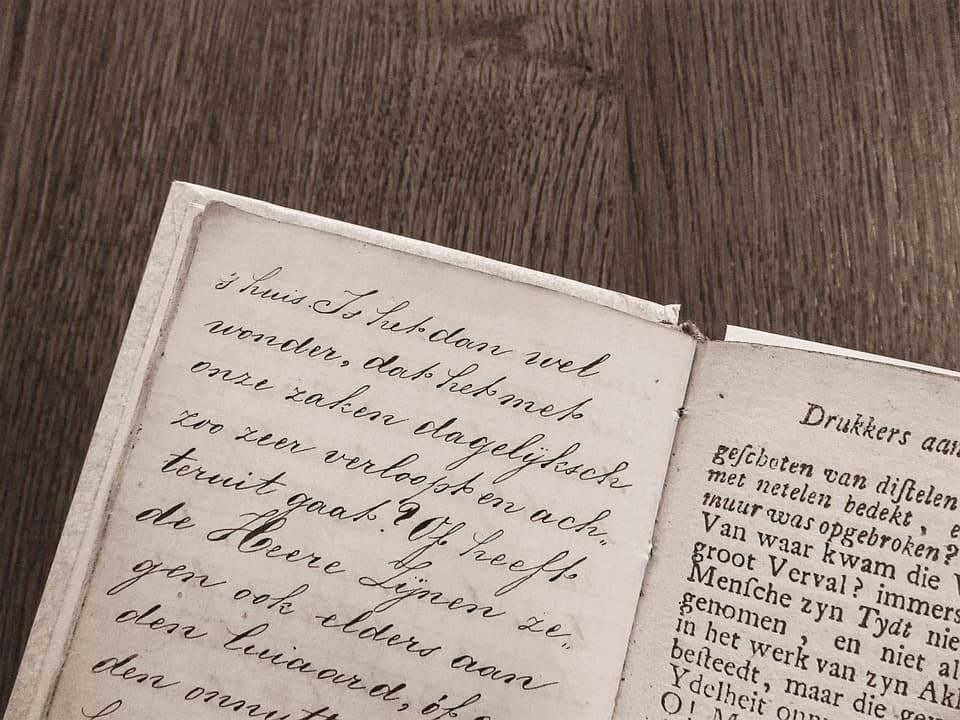 's huis. Is het dan wel
wonder, dat het met
onze zaken dagelijksch
zoo zeer verloopt en ach„
teruit gaat? Of heeft
de Heere Zijnen ze„
gen ook elders aan
den luiaard, óf a
den onnutt
Drukkers aan
geſchoten van diſtelen
met netelen bedekt, e
muur was opgebroken?
Van waar kwam die V
groot Verval? immers
Menſche zyn Tydt nie
genomen, en niet al
in het werk van zyn Akk
beſteedt, maar die ge
Ydelheit onn
O! M